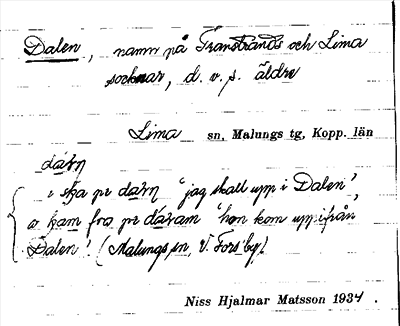 Dalen, namn på Transtrands och Lima
socknar, d. v. s. äldre
Lima sn, Malungs tg, Kopp. län
dárn
i ska pe darn "jag skall upp i Dalen",
o kam fra pe dáram "hon kom uppifrån
Dalen". (Malungs sn, V. Fors by).
Niss Hjalmar Matsson 1934.